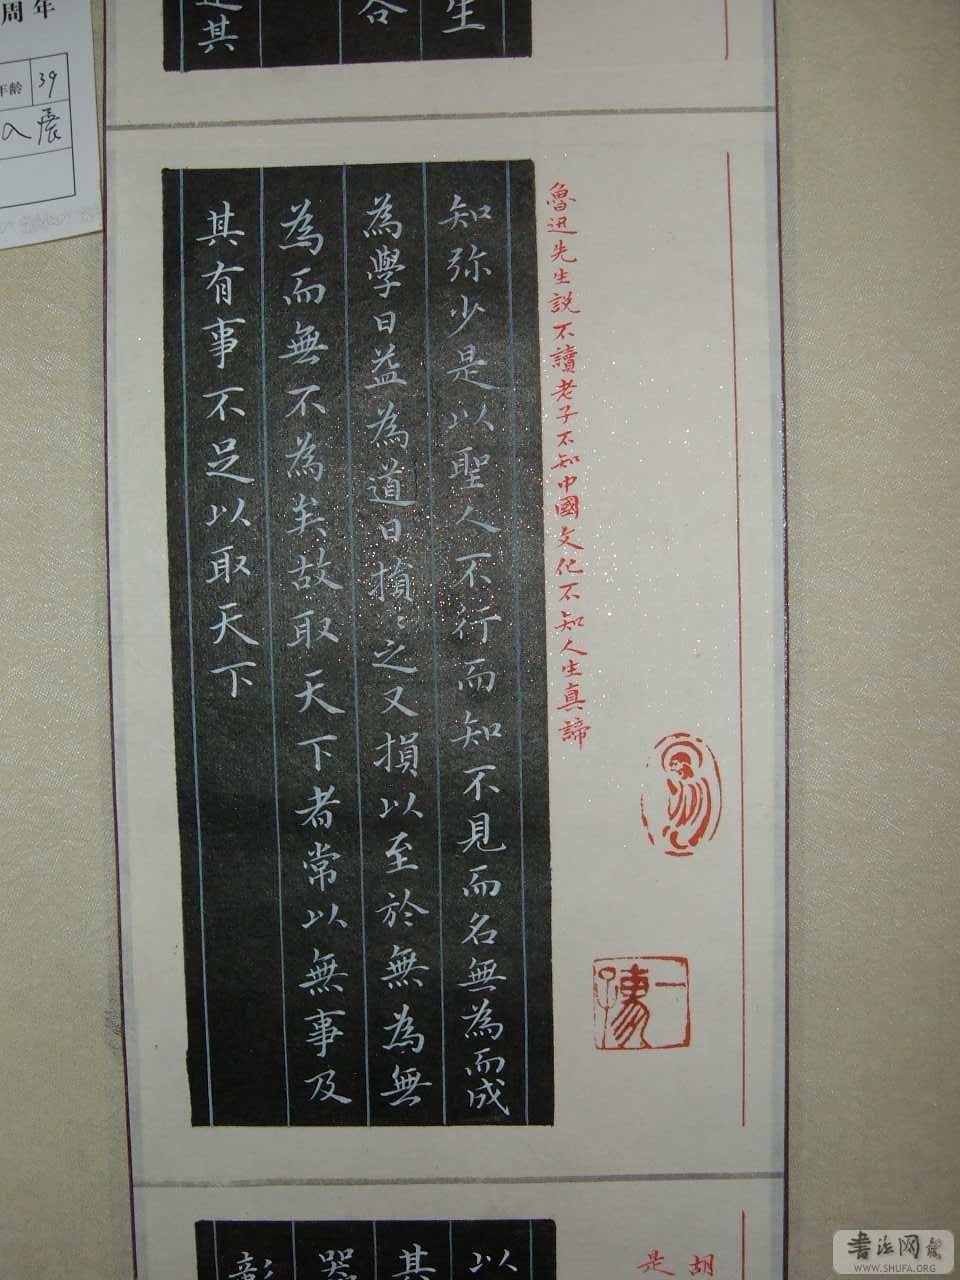 周年
年龄 39
入展
生
合
其
魯迅先生説不讀老子不知中國文化不知人生真諦
知弥少是以聖人不行而知不見而名無為而成
為學日益為道日損〻之又損以至於無為無
為而無不為矣故取天下者常以無事及
其有事不足以取天下
胡
是
以
其
器
彰
書法网
WWW.SHUFA.ORG